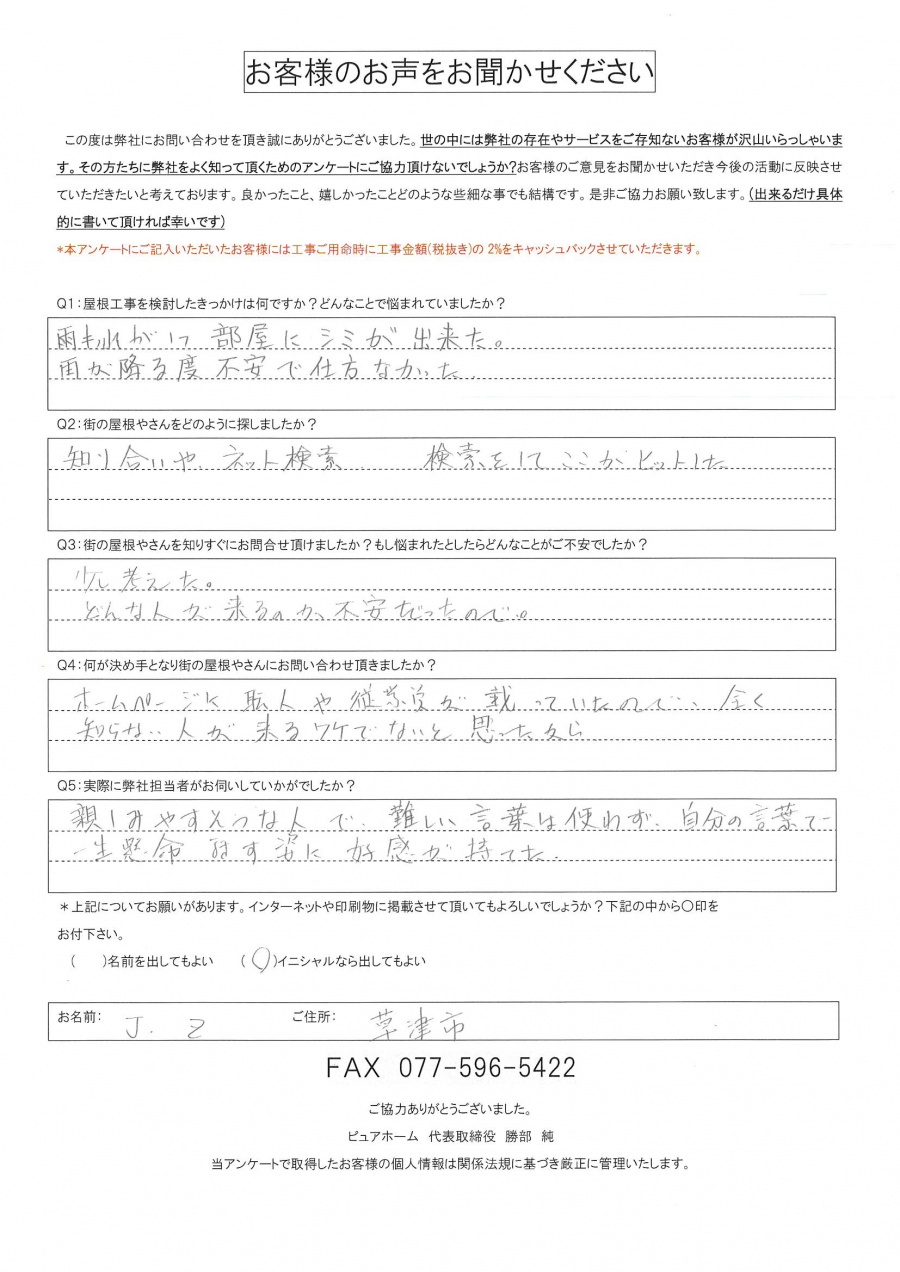 お客様のお声をお聞かせください
この度は弊社にお問い合わせを頂き誠にありがとうございました。世の中には弊社の存在やサービスをご存知ないお客様が沢山いらっしゃいま
す。その方たちに弊社をよく知って頂くためのアンケートにご協力頂けないでしょうか?お客様のご意見をお聞かせいただき今後の活動に反映させ
ていただきたいと考えております。良かったこと、嬉しかったことどのような些細な事でも結構です。是非ご協力お願い致します。(出来るだけ具体
的に書いて頂ければ幸いです)
*本アンケートにご記入いただいたお客様には工事ご用命時に工事金額(税抜き)の 2%をキャッシュバックさせていただきます。
Q1:屋根工事を検討したきっかけは何ですか?どんなことで悩まれていましたか?
雨もれがして 部屋に シミが 出来た。
雨が降る度 不安で仕方なかった.
Q2:街の屋根やさんをどのように探しましたか?
知り合いや、ネット検索 検索をして ここがヒットした
Q3:街の屋根やさんを知りすぐにお問合せ頂けましたか?もし悩まれたとしたらどんなことがご不安でしたか?
少し考えた。
どんな人が 来るのか、不安だったので。
Q4:何が決め手となり街の屋根やさんにお問い合わせ頂きましたか?
ホームページに 職人や 従業員が 載っていたので、全く
知らない人が 来るワケでないと 思ったから
Q5:実際に弊社担当者がお伺いしていかがでしたか?
親しみやすそうな人で、難しい言葉は使わず、自分の言葉で
一生懸命 話す姿に 好感が持てた.
*上記についてお願いがあります。インターネットや印刷物に掲載させて頂いてもよろしいでしょうか?下記の中から〇印を
お付下さい。
( )名前を出してもよい (〇)イニシャルなら出してもよい
お名前: J. Z ご住所: 草津市
FAX 077-596-5422
ご協力ありがとうございました。
ピュアホーム 代表取締役 勝部 純
当アンケートで取得したお客様の個人情報は関係法規に基づき厳正に管理いたします。